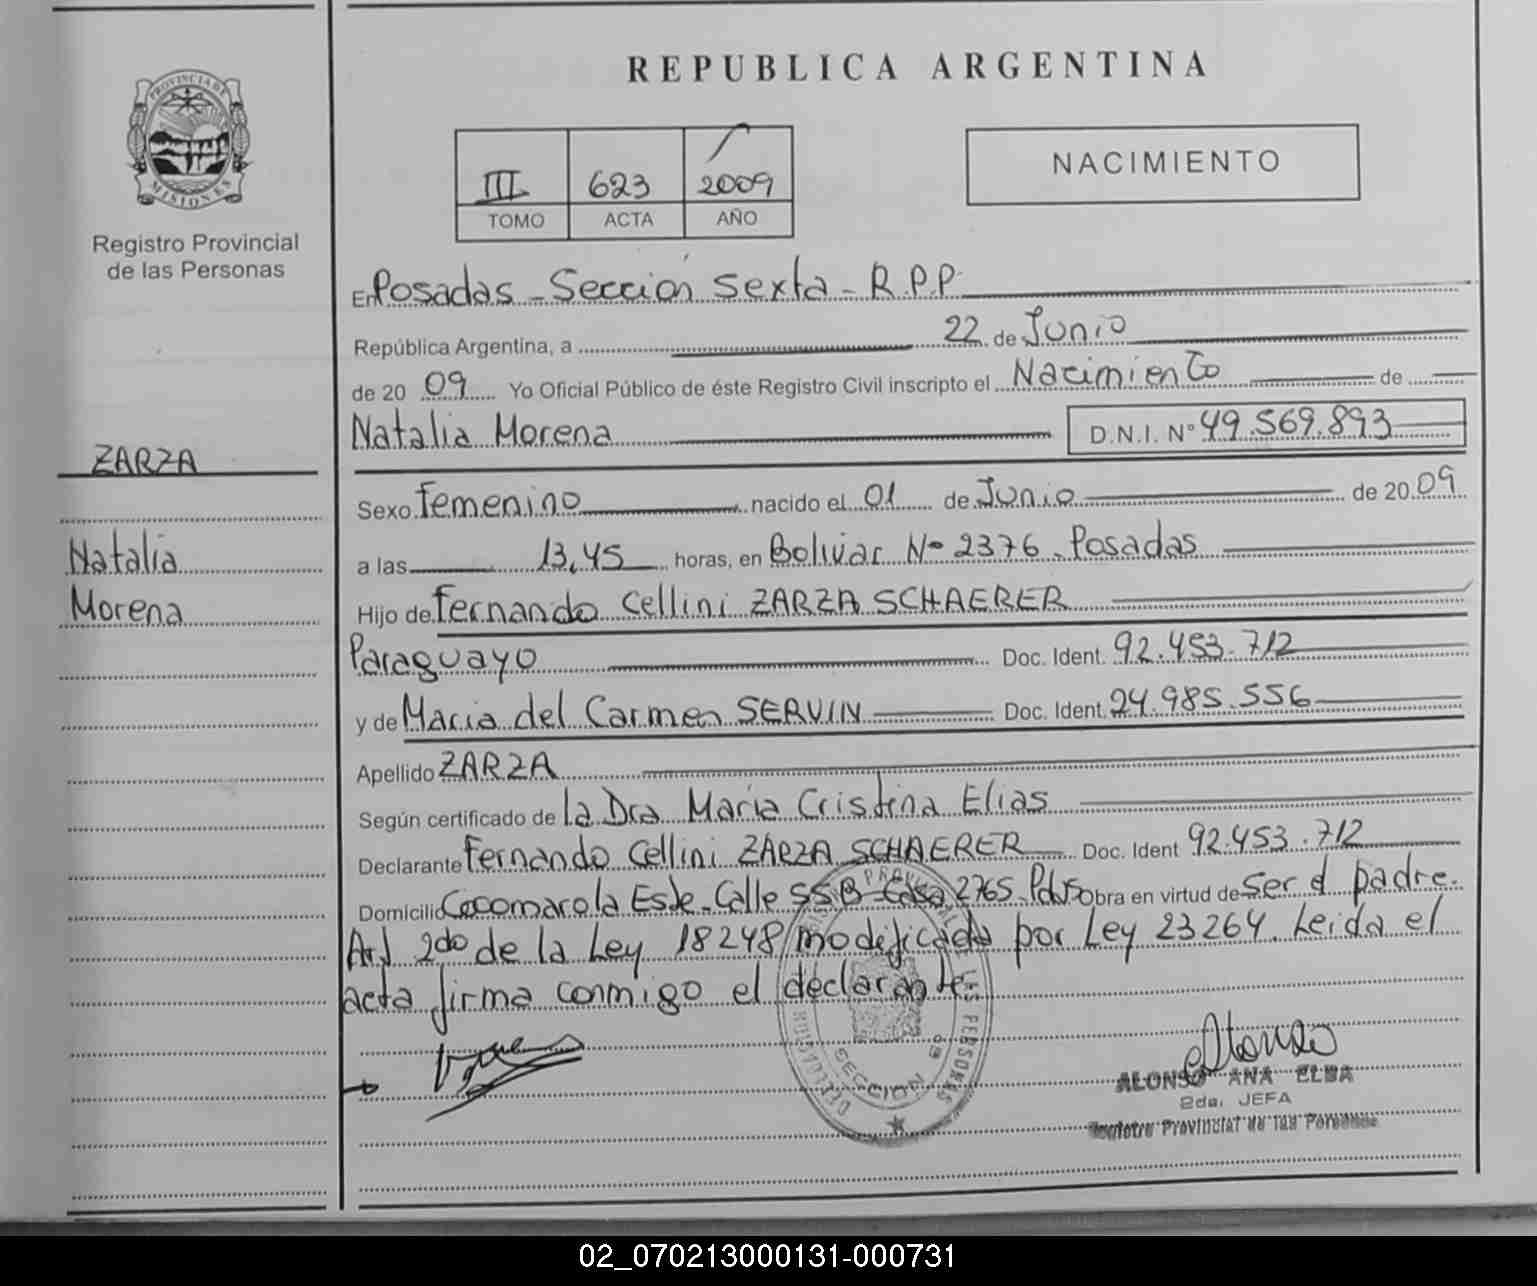 PROVINCIA DE
MISIONES
Registro Provincial
de las Personas
ZARZA
Natalia
Morena
REPUBLICA ARGENTINA
III 623 2009
TOMO ACTA AÑO
NACIMIENTO
En Posadas - Sección Sexta - R.P.P.
República Argentina, a 22 de Junio
de 20 09 Yo Oficial Público de éste Registro Civil inscripto el Nacimiento de
Natalia Morena D.N.I. N° 49.569.893
Sexo Femenino nacido el 01 de Junio de 20 09
a las 13,45 horas, en Bolivar Nº 2376 - Posadas
Hijo de Fernando Cellini ZARZA SCHAERER
Paraguayo Doc. Ident. 92.453.712
y de Maria del Carmen SERVIN Doc. Ident. 24.985.556
Apellido ZARZA
Según certificado de la Dra Maria Cristina Elias
Declarante Fernando Cellini ZARZA SCHAERER Doc. Ident 92.453.712
Domicilio Cocomarola Este - Calle 55B - Casa 2765 - Pdas Obra en virtud de Ser el padre.
Art 2do de la Ley 18248 modificada por Ley 23264. Leida el
acta firma conmigo el declarante.
SECCION
Alonso
ALONSO ANA ELBA
2da. JEFA
Registro Provincial de las Personas
02_070213000131-000731